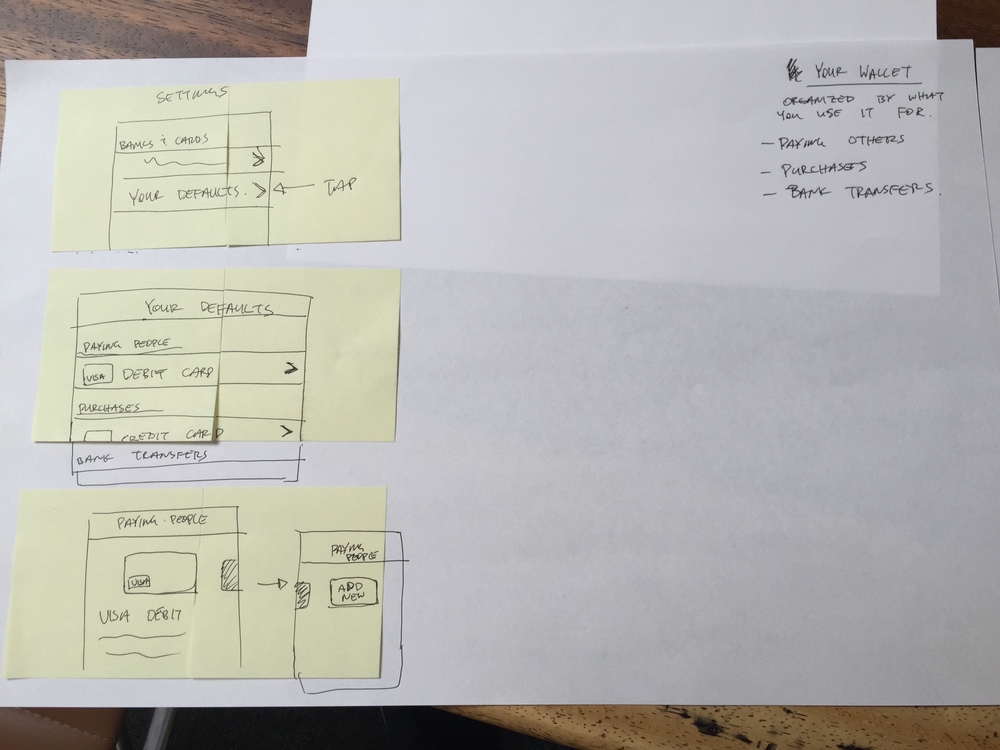 SETTINGS
BANKS & CARDS
YOUR DEFAULTS.
TAP
YOUR DEFAULTS
PAYING PEOPLE
VISA
DEBIT CARD
PURCHASES
CREDIT CARD
BANK TRANSFERS
PAYING PEOPLE
VISA
VISA DEBIT
PAYING
PEOPLE
ADD
NEW
YOUR WALLET
ORGANIZED BY WHAT
YOU USE IT FOR.
- PAYING OTHERS
- PURCHASES
- BANK TRANSFERS.